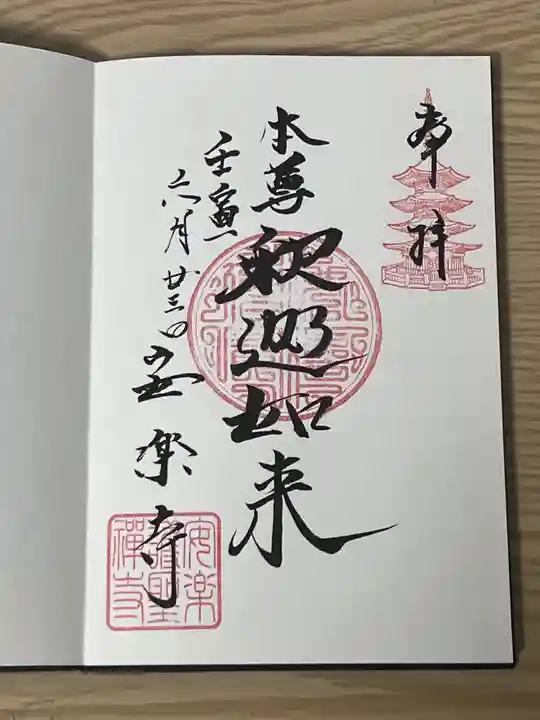 奉拝
本尊
釈迦如来
壬寅
六月廿三日
安楽寺
安楽
護聖
禪寺